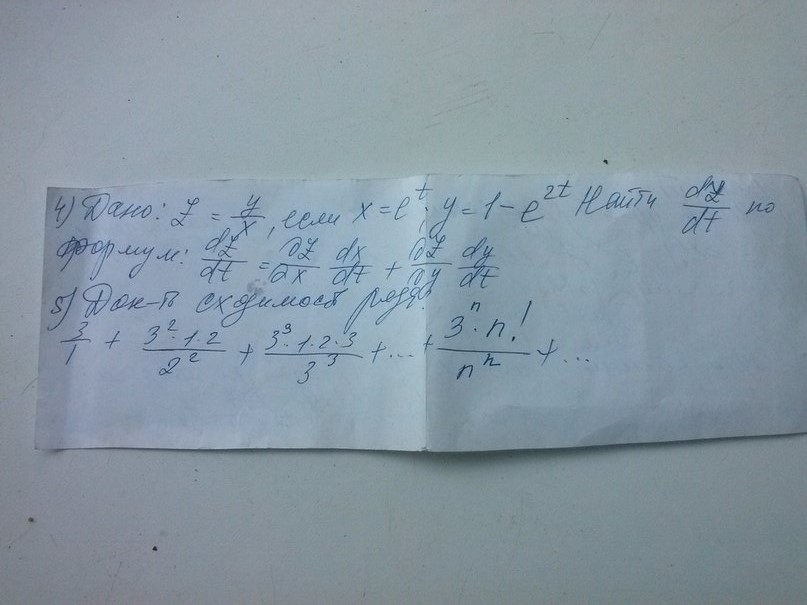 4) Дано: z = y/x, если x = e^t; y = 1 - e^{2t} Найти dz/dt по
формул: dz/dt = ∂z/∂x dx/dt + ∂z/∂y dy/dt
5) Док-ть сходимость ряда:
3/1 + 3^2·1·2/2^2 + 3^3·1·2·3/3^3 + ... + 3^n·n!/n^n + ...